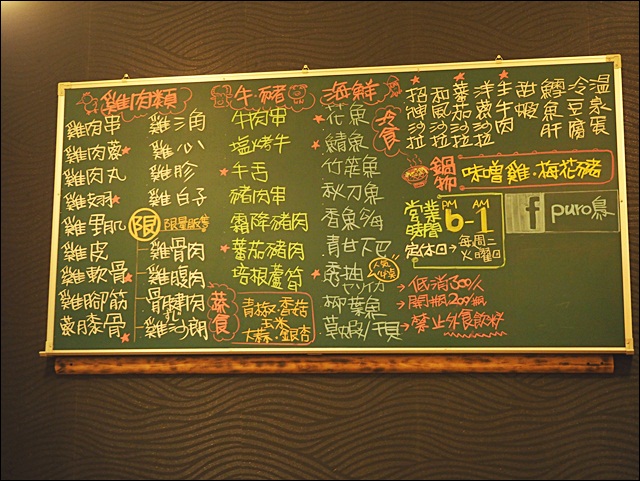 雞肉類
雞肉串
雞肉蔥
雞肉丸
雞翅
雞里肌
雞皮
雞軟骨
雞腳筋
雞膝骨
雞三角
雞心
雞胗
雞白子
限
限量販售
雞骨肉
雞腹肉
雞沙朗
牛.豬
牛肉串
塩烤牛
牛舌
豬肉串
霜降豬肉
蕃茄豬肉
培根蘆筍
蔬食
青椒.香菇
玉米
大蒜.銀杏
海鮮
花魚
鯖魚
竹筴魚
秋刀魚
香魚
青甘下巴
柳葉魚
草蝦/干貝
冷食
招牌沙拉
和風沙拉
蕃茄沙拉
洋蔥沙拉
生牛肉
甜蝦
鱈魚肝
冷豆腐
溫泉蛋
鍋物
味噌雞.梅花豬
營業時間
PM AM
6-1
定休日→每週二
火曜日
f puro鳥
→低消300/人
→開瓶200/瓶
→禁止外食飲料